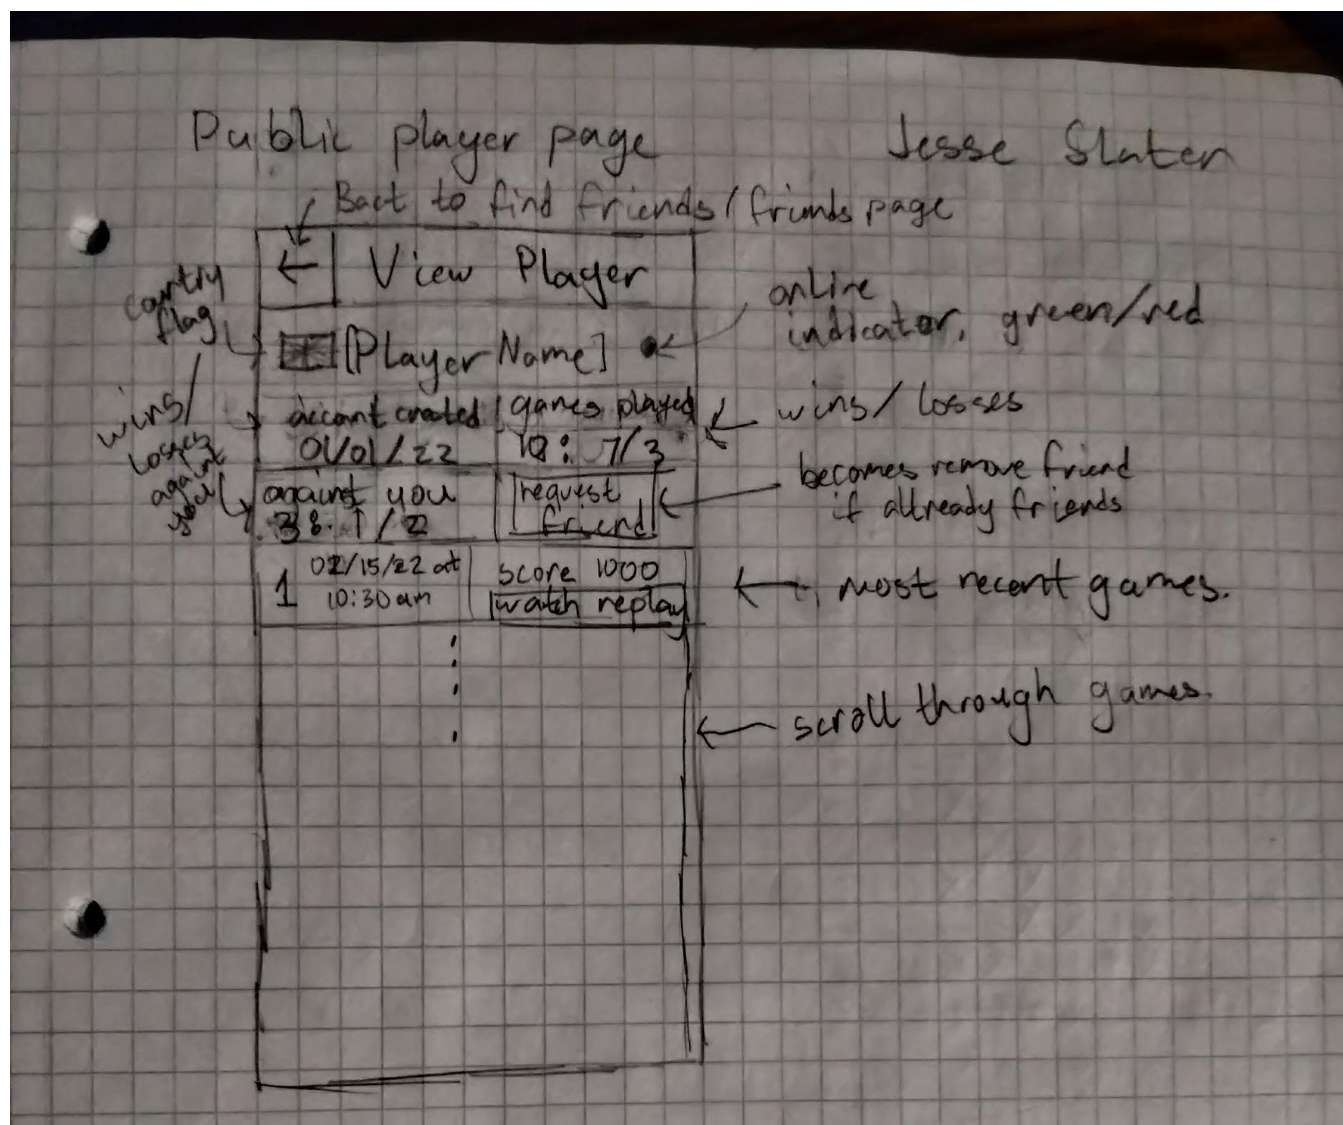 Public player page
Jesse Slater
Back to find friends / friends page
← View Player
country
flag
[Player Name]
online
indicator, green/red
wins/
losses
against
you
account created
01/01/22
games played
10: 7/3
wins/losses
against you
3: 1/2
request
friend
becomes remove friend
if allready friends
1
02/15/22 at
10:30 am
score 1000
watch replay
most recent games.
scroll through games.